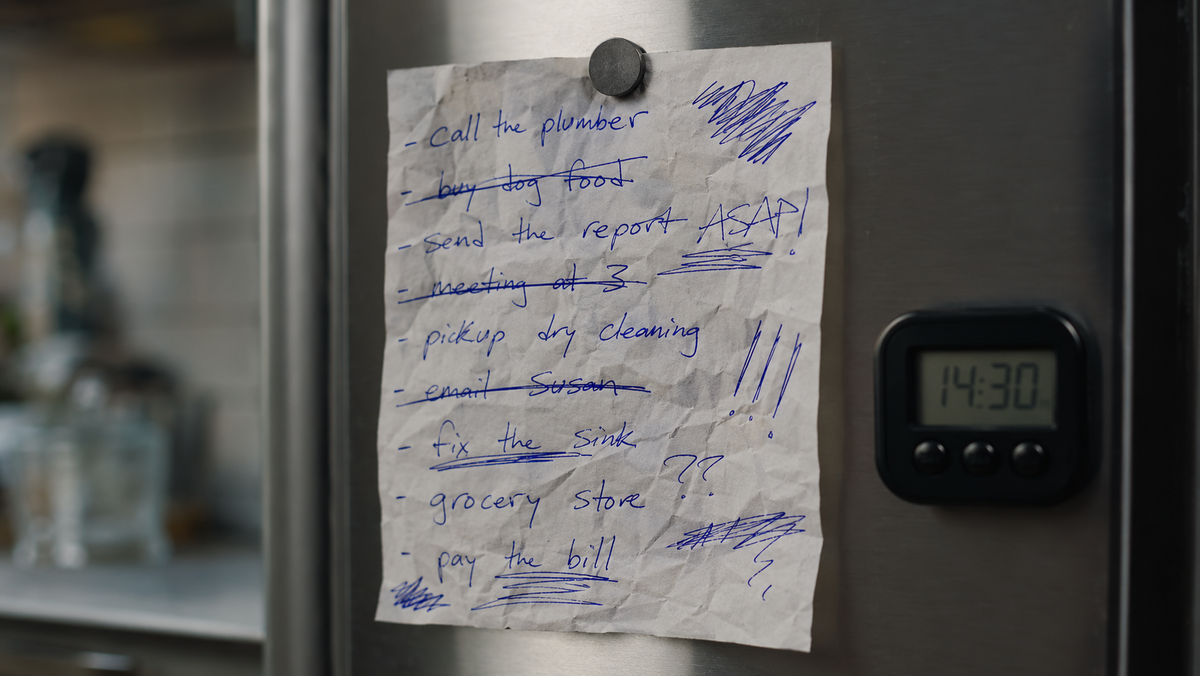 - call the plumber
- buy dog food
- send the report ASAP!
- meeting at 3
- pickup dry cleaning
!!!
- email Susan
- fix the sink
- grocery store ??
- pay the bill
14:30